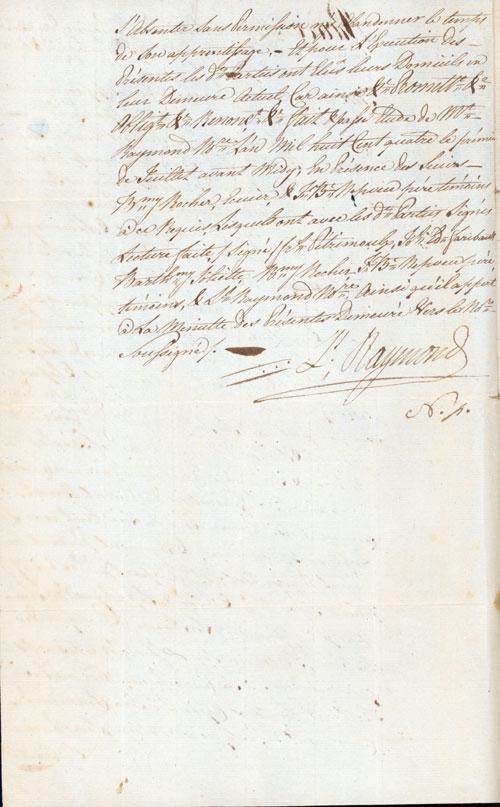 s'absenter sans permission ny abandonner le temps
de son apprentissage, — Et pour L'Execution des
Présentes les dts parties ont élus leurs Domicile en
leur Demeure Actuel, Car ainsi &c Promettt &c
Obligt &c Renonct &c Fait & passé Etude de Mtre
Raymond Nre L'an Mil huit Cent quatre le premier
de Juillet avant Midy, En Présence des Sieurs
Bmy Rocher, huissier & J. Bte Neveu pere témoins
à ce Requis Lesquels ont avec les dts Parties Signés
Lecture faite / Signés /
Barthmy Joliette, Bmy Rocher J. Bte Neveu père
témoins, & Ls Raymond Nre Ainsi qu'il appert
à La Minutte des Présentes Demeuré Vers le Nre
Soussigné /.
Ls Raymond
N. p.